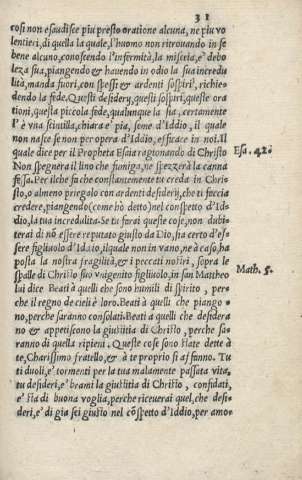 31
cosi non esaudisce piu presto oratione alcuna, ne piu vo
lentieri, di quella la quale, l'huomo non ritrouando in se
bene alcuno, conoscendo l'infermità, la miseria, e' debo
lezza sua, piangendo & hauendo in odio la sua incredu
lità, manda fuori, con spessi & ardenti sospiri, richie
dendo la fede. Questi desidery, questi sospiri, queste ora
tioni, questa piccola fede, qualunque la sia, certamente
l'è vna scintilla, chiara e' pia, seme d'Iddio, il quale
non nasce se non per opera d'Iddio, efficace in noi. Il
quale dice per il Propheta Esaia ragionando di Christo
Esa. 42.
Non spegnera il lino che fumiga, ne spezzerà la canna
fessa. Per ilche fa che constantemente tu creda in Chri-
sto, o almeno priegalo con ardenti desidery, che ti faccia
credere, piangendo (come hò detto) nel conspetto d'Id-
dio, la tua incredulita. Se tu farai queste cose, non dubi-
terai di nō essere reputato giusto da Dio, sia certo d'es-
sere figliuolo d'Iddio, ilquale non in vano, ne à caso, ha
posta la nostra fragilità, & i peccati nostri, sopra le
spalle di Christo suo vnigenito figliuolo, in san Mattheo
Math. 5.
lui dice Beati à quelli che sono humili di spirito, per
che il regno de cieli è loro. Beati à quelli che piango
no, perche saranno consolati. Beati a quelli che desidera
no & appetiscono la giustitia di Christo, perche sa-
ranno di quella ripieni. Queste cose sono state dette à
te, Charissimo fratello, & à te proprio si affanno. Tu
ti duoli, e' tormenti per la tua malamente passata vita,
tu desideri, e' brami la giustitia di Christo, confidati,
e' sia di buona voglia, perche riceuerai quel, che desi-
deri, e' di gia sei giusto nel cōspetto d'Iddio, per amo-